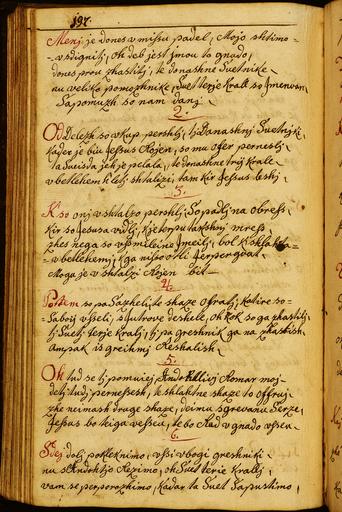 197.
Menj je dones v missu padel, Mojo shtimo-
-vsdignitj, oh deb jest jmou to gnado,
dones prou zhastitj, te donashne Suetnike
nu veliko pomozhnike, suet terje krali so jmenovani
Sapomozh so nam danj
2.
Od Delezh so vkup pershlj, tj Danashnj Suetnikj,
kader je biu Jessus Rojen, so mu ofer pernesli,
ta Suisda jeh je pelala, te donashne trij krale
v betlehem k letj shtalizi, tam kir Jessus leshj
3.
K so onj v shtalzo pershlj, Sopadlj na obress,
kir so Jesusa vidlj,
zhes nega so vssmileine Jmeilj, bol
v betlehemj, kga niso otli Perpergvat
Moga je v shtalzi Rojen bit
4.
Potem so pa Sazheli, te shaze ofratj, katire so
Saboij vsseli, s jutrove deshele, oh kok so ga zhastilj,
tj Suetj terje kralj, tj pa greshnik ga na zhastish
Ampak is greihmj Reshalish
5.
Oh tud se tj pomuiej,
detj tudj pernessesh, te shlahtne shaze to offruj
zhe neimash druge shaze, deimu sgrevanu Serze,
Jessus bo teiga vesseu, te bo Rad v gnado vsseu
6.
Sdej dolj pokleknimo, vssi vbogi greshniki
nu s Andohtjo Rezimo, oh Suet terie kralij,
vam se perporozhimo, kadar ta Suet Sapustimo,